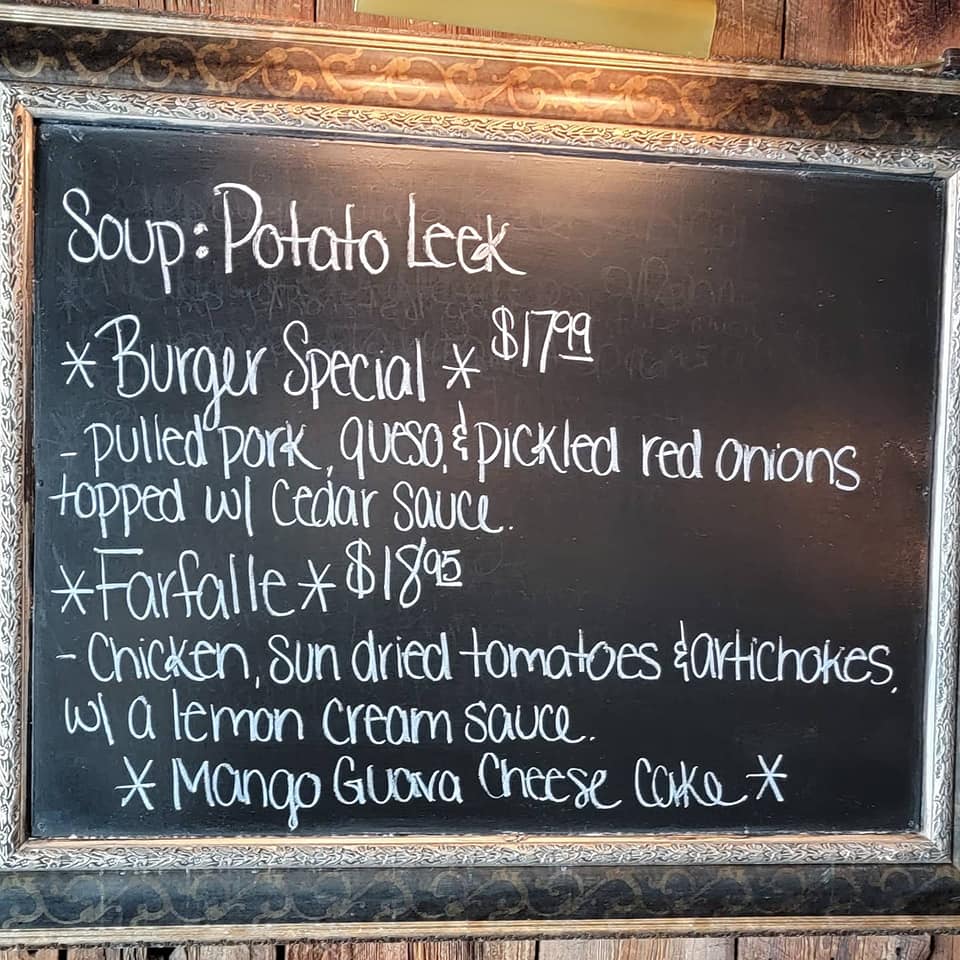 Soup: Potato Leek
* Burger Special * $17.99
- pulled pork, queso, & pickled red onions
topped w/ Cedar sauce.
* Farfalle * $18.95
- Chicken, sun dried tomatoes & artichokes,
w/ a lemon cream sauce.
* Mango Guava Cheese Cake *